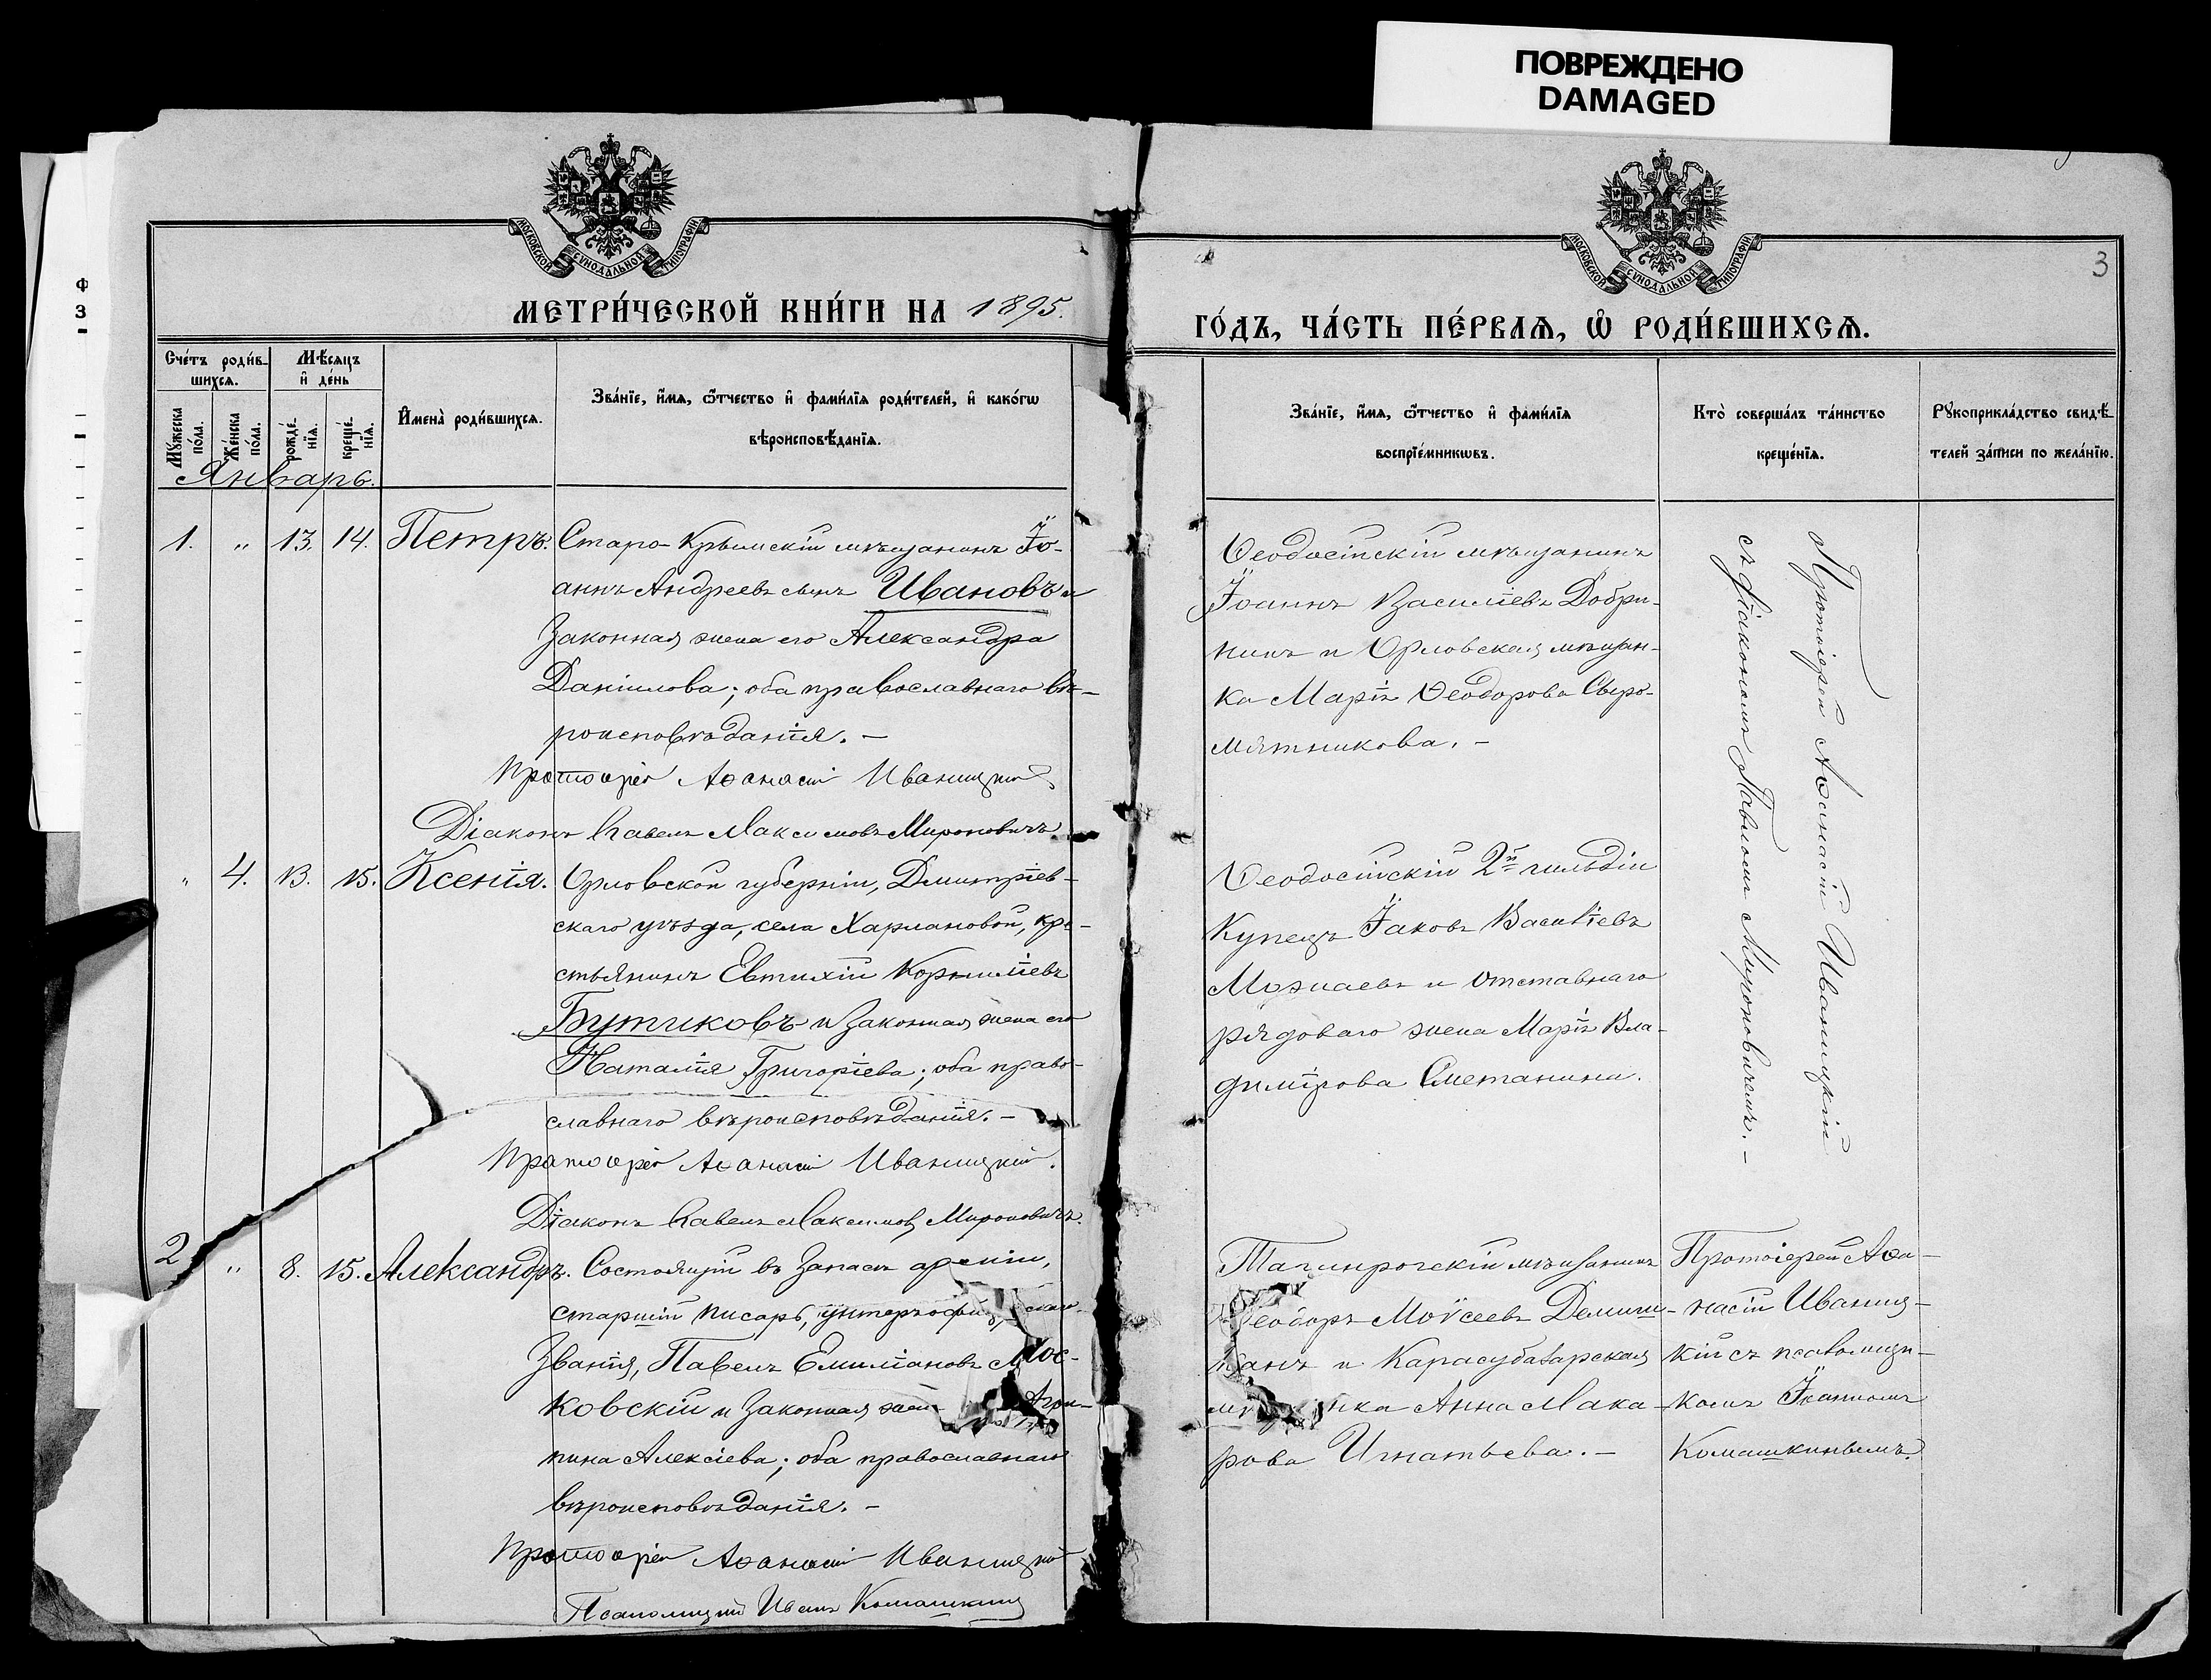 ПОВРЕЖДЕНО
DAMAGED
МОСКОВСКОЙ СѴНОДАЛЬНОЙ ТИПОГРАФІИ
МОСКОВСКОЙ СѴНОДАЛЬНОЙ ТИПОГРАФІИ
3
Ф
3
МЕТРИ́ЧЕСКОЙ КНИ́ГИ НА 1895.
ГО́ДЪ, ЧА́СТЬ ПЕ́РВАѦ, Ѡ҆ РОДИ́ВШИХСѦ.
Сче́тъ роди́в-
шихсѧ.
Мѣ́сѧцъ
и҆ де́нь
Мꙋ́жеска
по́ла.
Же́нска
по́ла.
рожде́-
нїѧ.
креще́-
нїѧ.
И҆мена̀ роди́вшихсѧ.
Зва́нїе, и҆́мѧ, ѻ҆́тчество и҆ фами́лїѧ роди́телей, и҆ како́гѡ
вѣроисповѣ́данїѧ.
Зва́нїе, и҆́мѧ, ѻ҆́тчество и҆ фами́лїѧ
воспрїе́мникѡвъ.
Кто̀ соверша́лъ та́инство
креще́нїѧ.
Рꙋкоприкла́дство свидѣ́-
телей за́писи по жела́нїю.
Январь.
1. „ 13. 14. Петръ. Старо-Крымскій мѣщанинъ Іо-
аннъ Андреевъ сынъ Ивановъ и
законная жена его Александра
Даніилова; оба православнаго вѣ-
роисповѣданія. –
Протоіерей Аѳанасій Иваницкій
Діаконъ Павелъ Максимовъ Мироновичъ
Ѳеодосійскій мѣщанинъ
Іоаннъ Василіевъ Добри-
нинъ и Орловская мѣщан-
ка Марія Ѳеодорова Сыро-
мятникова. –
Протоіерей Аѳанасій Иваницкій
съ діакономъ Павломъ Мироновичемъ. –
„ 4. 13. 15. Ксенія. Орловской губерніи, Дмитріев-
скаго уѣзда, села Харлановой, кре-
стьянинъ Евтихій Корниліевъ
Бутиковъ и законная жена его
Наталія Григоріева; оба право-
славнаго вѣроисповѣданія. –
Протоіерей Аѳанасій Иваницкій.
Діаконъ Павелъ Максимовъ Мироновичъ.
Ѳеодосійскій 2й гильдіи
купецъ Іаковъ Василіевъ
и отставнаго
рядоваго жена Марія Вла-
димірова Сметанина.
2 „ 8. 15. Александръ. Состоящій въ запасѣ арміи,
старшій писарь, унтеръ-офиц
званія, Павелъ Емиліановъ Мос-
ковскій и законная жен Агри-
пина Алексіева; оба православнаго
вѣроисповѣданія. –
Протоіерей Аѳанасій Иваницкій
Псаломщикъ Иванъ Комашкинъ
Таганрогскій мѣщанинъ
Ѳеодоръ Моисеевъ
и Карасубазарская
Анна Мака-
рова Игнатьева. –
Протоіерей Аѳа-
насій Иваниц-
кій съ псаломщи-
комъ Іоанномъ
Комашкинымъ.